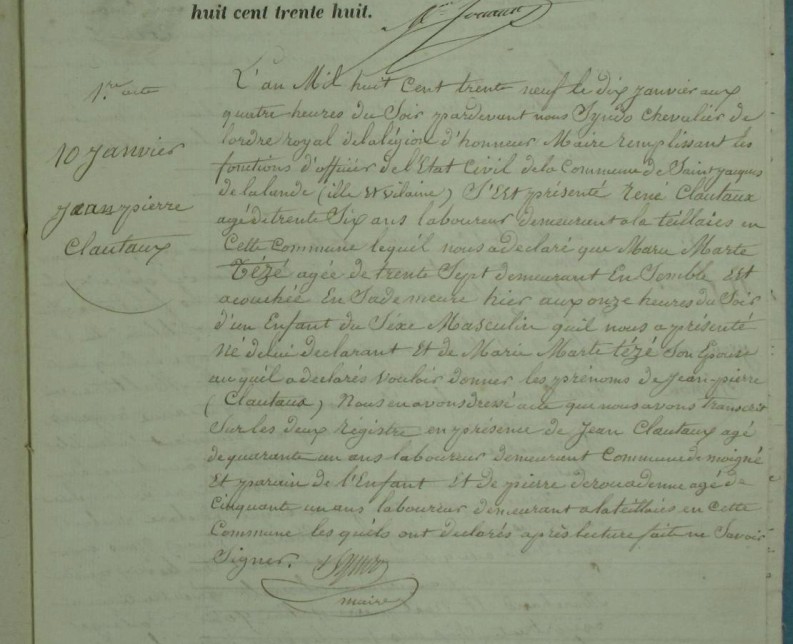 huit cent trente huit.
1er acte
10 janvier
jean pierre
Clautaux
L'an Mil huit Cent trente neuf le dix janvier aux
quatre heures du Soir pardevant nous Chevalier de
lordre royal delalégion d'honneur Maire remplissant les
fonctions d'officier de l'Etat Civil dela Commune de Saint jaques
de lalande (ille et vilaine) S'Est présenté René Clautaux
agé de trente Six ans laboureur demeurant ala teillaies en
Cette Commune lequil nous a declaré que Marie Marte
tézé agée de trente Sept demeurant En Semble Est
acouchée En Sademeure hier aux onze heures du Soir
d'un Enfant du Séxe Masculin quil nous a présenté
Né delui declarant Et de Marie Marte tézé Son Epouse
auquil a declarés vouloir donner les prénoms de Jean pierre
(Clautaux) Nous en avons dressé acte que nous avons transcrit
Sur les deux régistre en présence de Jean Clautaux agé
de quarante un ans laboureur demeurant Commune de moigné
Et parain de l'Enfant Et de pierre derouadenne agé de
Cinquante un ans laboureur demeurant alateillaies en Cette
Commune les quéls ont declarés après lecture faite ne Savoir
Signer.
maire